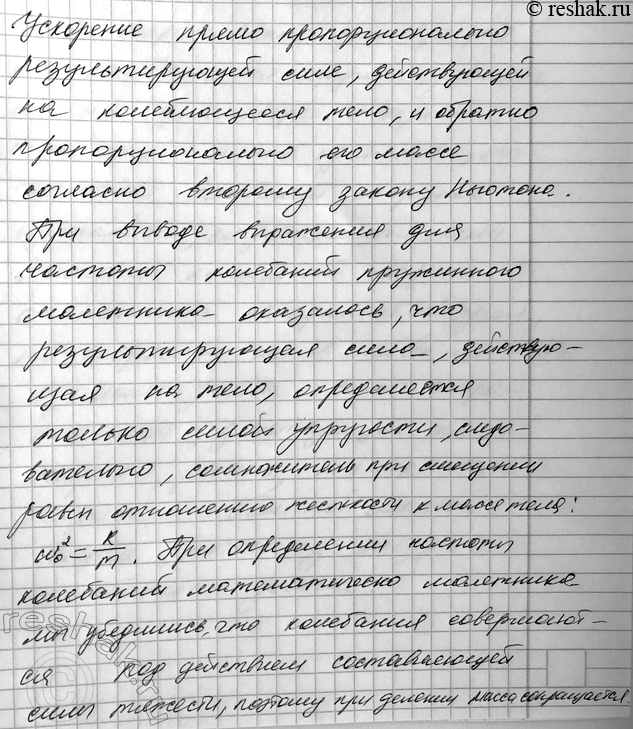 © reshak.ru
Ускорение прямо пропорционально
результирующей силе, действующей
на колеблющееся тело, и обратно
пропорционально его массе
согласно второму закону Ньютона.
При выводе выражения для
частоты колебаний пружинного
маятника оказалось, что
результирующая сила, действую-
щая на тело, определяется
только силой упругости, следо-
вательно, сомножитель при смещении
равен отношению жесткости к массе тела:
ω₀² = k/m. При определении частоты
колебаний математическо маятника
мы убедились, что колебания совершают-
ся под действием составляющей
силы тяжести, поэтому при делении масса сокращается.
reshak.ru